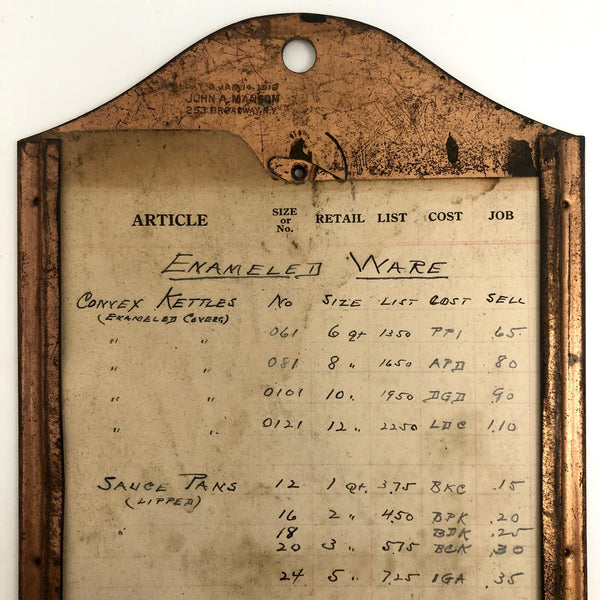 PAT'D JAN 14, 1913
JOHN A. MANSON
253 BROADWAY, N.Y.
ARTICLE SIZE or No. RETAIL LIST COST JOB
ENAMELED WARE
CONVEX KETTLES No SIZE LIST COST SELL
(ENAMELED COVERS)
" " 061 6 qt 1350 PPI 65
" " 081 8 " 1650 APD 80
" " 0101 10 " 1950 DGD 90
" " 0121 12 " 2250 LDC 1.10
SAUCE PANS 12 1 Qt. 3.75 BKC .15
(LIPPED)
16 2 " 4.50 BPK .20
18 BDK .25
20 3 " 5.75 BCK .30
24 5 " 7.25 IGA .35